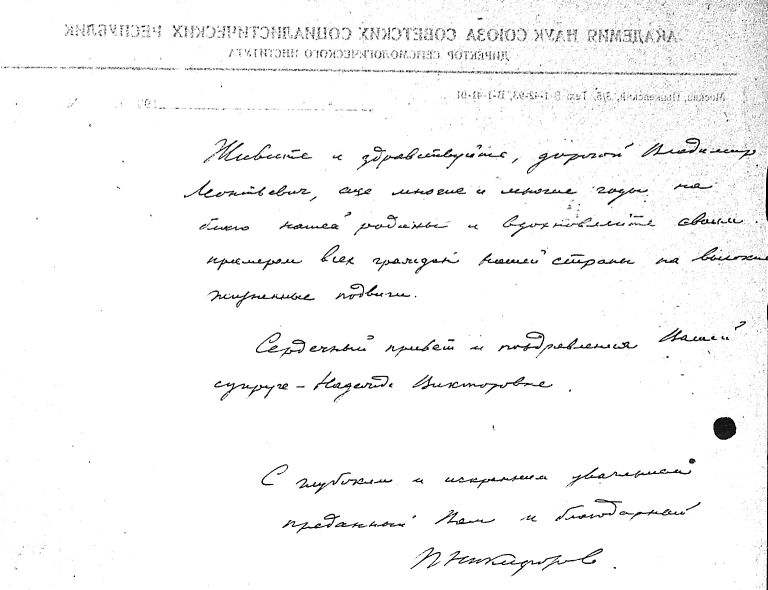 АКАДЕМИЯ НАУК СОЮЗА СОВЕТСКИХ СОЦИАЛИСТИЧЕСКИХ РЕСПУБЛИК
ДИРЕКТОР СЕЙСМОЛОГИЧЕСКОГО ИНСТИТУТА
Москва, Пыжевский, 3/5, Тел. В-1-42-93, В-1-41-01
Живите и здравствуйте, дорогой Владимир
Леонтьевич, еще многие и многие годы на
благо нашей родины и вдохновляйте своим
примером всех граждан нашей страны на высокие
жизненные подвиги.
Сердечный привет и поздравления Вашей
супруге – Надежде Викторовне.
С глубоким и искренним уважением
преданный Вам и благодарный
П Никифоров.